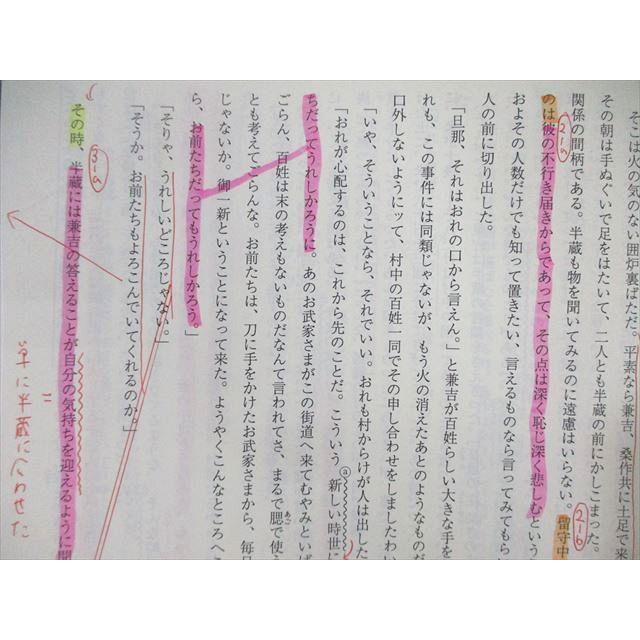 そこは火の気のない囲炉裏ばただ。平素なら兼吉、桑作共に土足で来
その朝は手ぬぐいで足をはたいて、二人とも半蔵の前にかしこまった。
関係の間柄である。半蔵も物を聞いてみるのに遠慮はいらない。留守中
2-b
のは彼の不行き届きからであって、その点は深く恥じ深く悲しむという
2-a
およその人数だけでも知って置きたい、言えるものなら言ってみてもら
人の前に切り出した。
「旦那、それはおれの口から言えん。」と兼吉が百姓らしい大きな手を
れも、この事件には同類じゃないが、もう火の消えたあとのようなものだ
口外しないようにッて、村中の百姓一同でその申し合わせをしましたわい
「いや、そういうことなら、それでいい。おれも村からけが人は出した
「おれが心配するのは、これから先のことだ。こういうⓐ新しい時世に
ちだってうれしかろうに。あのお武家さまがこの街道へ来てむやみといば
ごらん、百姓は末の考えもないものだなんて言われてさ、まるで腮で使
あご
とも考えてごらんな。お前たちは、刀に手をかけたお武家さまから、毎日
じゃないか。御一新ということになって来た。ようやくこんなところへこ
ら、お前たちだってもうれしかろう。」
「そりゃ、うれしいどころじゃない。」
「そうか。お前たちもよろこんでいてくれるのか。」
3-a
その時、半蔵には兼吉の答えることが自分の気持ちを迎えるように聞
単に半蔵に合わせた